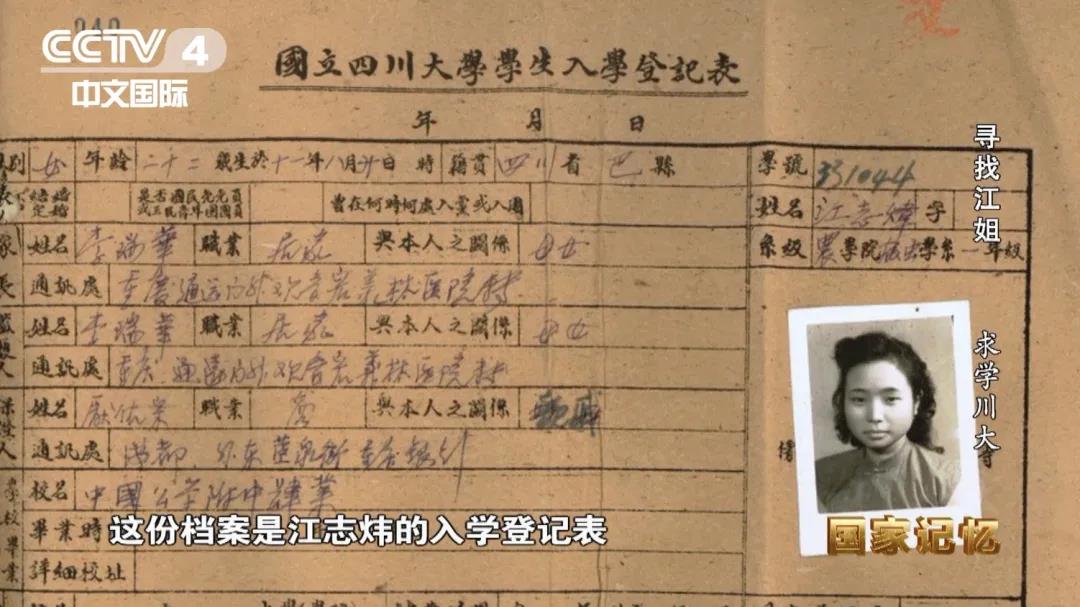 CCTV 4
中文国际
國立四川大學學生入學登記表
年 月 日
别 女 年齡 二十二 歲生於十一年八月廿日 時 籍貫 四川 省 巴 縣
學號 331044
結婚
定婚
是否國民党党員
或三民青年团團員
曾在何時何處入黨或入團
姓名 江志煒 字
姓名 李瑞華 職業 居家 與本人之關係 母女
系級 農學院 學系一年級
長 通訊處 重慶通远门外观音岩義林医院转
姓名 李瑞華 職業 居家 與本人之關係 母女
人 通訊處 重庆通远门外观音岩義林医院转
姓名 職業 與本人之關係 親戚
人 通訊處 成都 外东
學校畢業
校名 中國公学附中肄業
畢業時
詳細校址
寻找江姐
求学川大
这份档案是江志炜的入学登记表
国家记忆